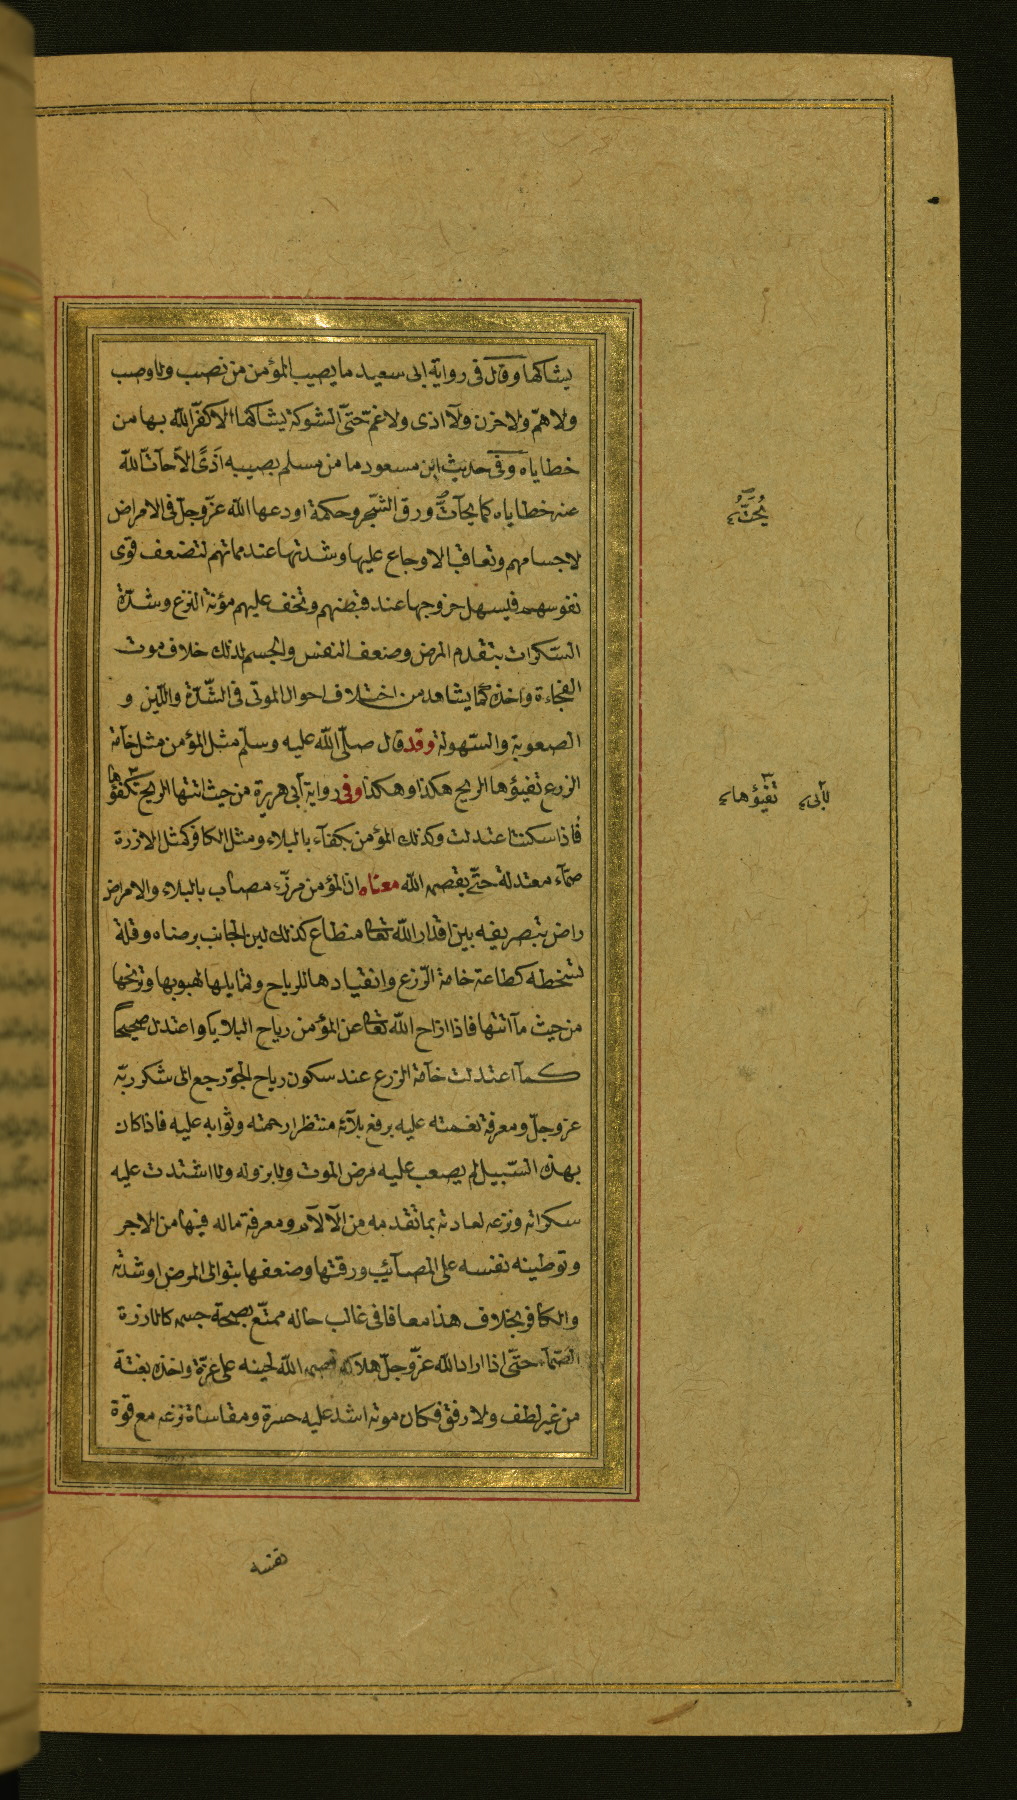 يشاكها وقال فى رواية ابى سعيد ما يصيب المؤمن من نصب ولا وصب
ولا همّ ولا حزن ولا اذى ولا غمّ حتّى الشوكة يشاكها الا كفّر اللّه بها من
خطاياه وفى حديث ابن مسعود ما من مسلم يصيبه اذًى الا حاتّ اللّه
عنه خطاياه كما يحاتّ ورق الشّجر وحكمة اودعها اللّه عزّ وجلّ فى الامراض
لاجسامهم وتعاقب الاوجاع عليها وشدتها عند مماتهم لتضعف قوى
نفوسهم فيسهل خروجها عند قبضهم وتخف عليهم مؤنة النزع وشدّة
السّكرات بتقدم المرض وضعف النفس والجسم لذلك خلاف موت
الفجاءة واخذه كما يشاهد من اختلاف احوال الموتى فى الشّدّة واللّين و
الصعوبة والسّهولة وقد قال صلّى اللّه عليه وسلّم مثل المؤمن مثل خامة
الزرع تفيؤها الريح هكذا وهكذا وفى رواية ابى هريرة من حيث اتتها الريح تكفؤها
فاذا سكنت اعتدلت وكذلك المؤمن يكفآء بالبلاء ومثل الكافر كمثل الارزة
صمّآء معتدلة حتّى يقصمه اللّه معناه ان المؤمن مرزّء مصاب بالبلاء والامراض
راض بتصريفه بين اقدار اللّه تعالى منطاع كذلك لين الجانب برضاه وقلة
سخطه كطاعة خامة الزّرع وانقيادها للرياح وتمايلها لهبوبها وترنحها
من حيث ما اتتها فاذا ازاح اللّه تعالى عن المؤمن رياح البلايا واعتدل صحيحًا
كما اعتدلت خامة الزرع عند سكون رياح الجوّ رجع الى شكر ربّه
عزّ وجلّ ومعرفة نعمته عليه برفع بلآئه منتظرا رحمته وثوابه عليه فاذا كان
بهذه السّبيل لم يصعب عليه مرض الموت ولا نزوله ولا اشتدت عليه
سكراته ونزعه لعادته بما تقدمه من الآلام ومعرفة ماله فيها من الاجر
وتوطينه نفسه على المصآئب ورقتها وضعفها بتوالى المرض او شدته
والكافر بخلاف هذا معافا فى غالب حاله ممتّع بصحة جسمه كالارزة
الصّمآء حتّى اذا اراد اللّه عزّ وجلّ هلاكه قصمه اللّه لحينه على غرّة واخذه بغتة
من غير لطف ولا رفق فكان موته اشد عليه حسرة ومقاساة نزعه مع قوة
يُحَتُّ
تفيّؤها
نفسه